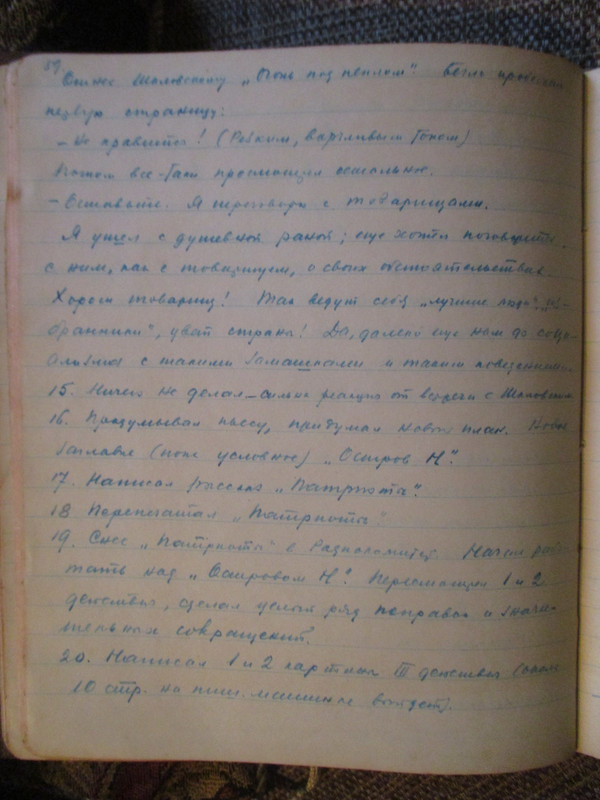 59.
Снёс Шкловскому „Огонь под пеплом". Бегло прочитал
первую страницу:
– Не нравится! (Резким, варгливым тоном)
Потом все-таки просмотрел остальное.
– Оставьте. Я переговорю с товарищами.
Я ушел с душевной раной; еще хотел поговорить
с ним, как с товарищем, о своих обстоятельствах.
Хорош товарищ! Так ведут себя „лучшие люди", „из-
бранники", увы страны! Да, далеко еще нам до соци-
ализма с такими замашками и таким поведением
15. Ничего не делал – сильная реакция от встречи с
16. Продумывал пьесу, придумал новый план. Новое
заглавие (пока условное) „Остров N".
17. Написал рассказ „Патриоты".
18. Перепечатал „Патриоты"
19. Снес „Патриоты" в Радиокомитет. Начал рабо-
тать над „Островом N". Пересмотрел 1 и 2
действия, сделал целый ряд поправок и значи-
тельных сокращений.
20. Написал 1 и 2 картины III действия (около
10 стр. на пиш. машинке выйдет).